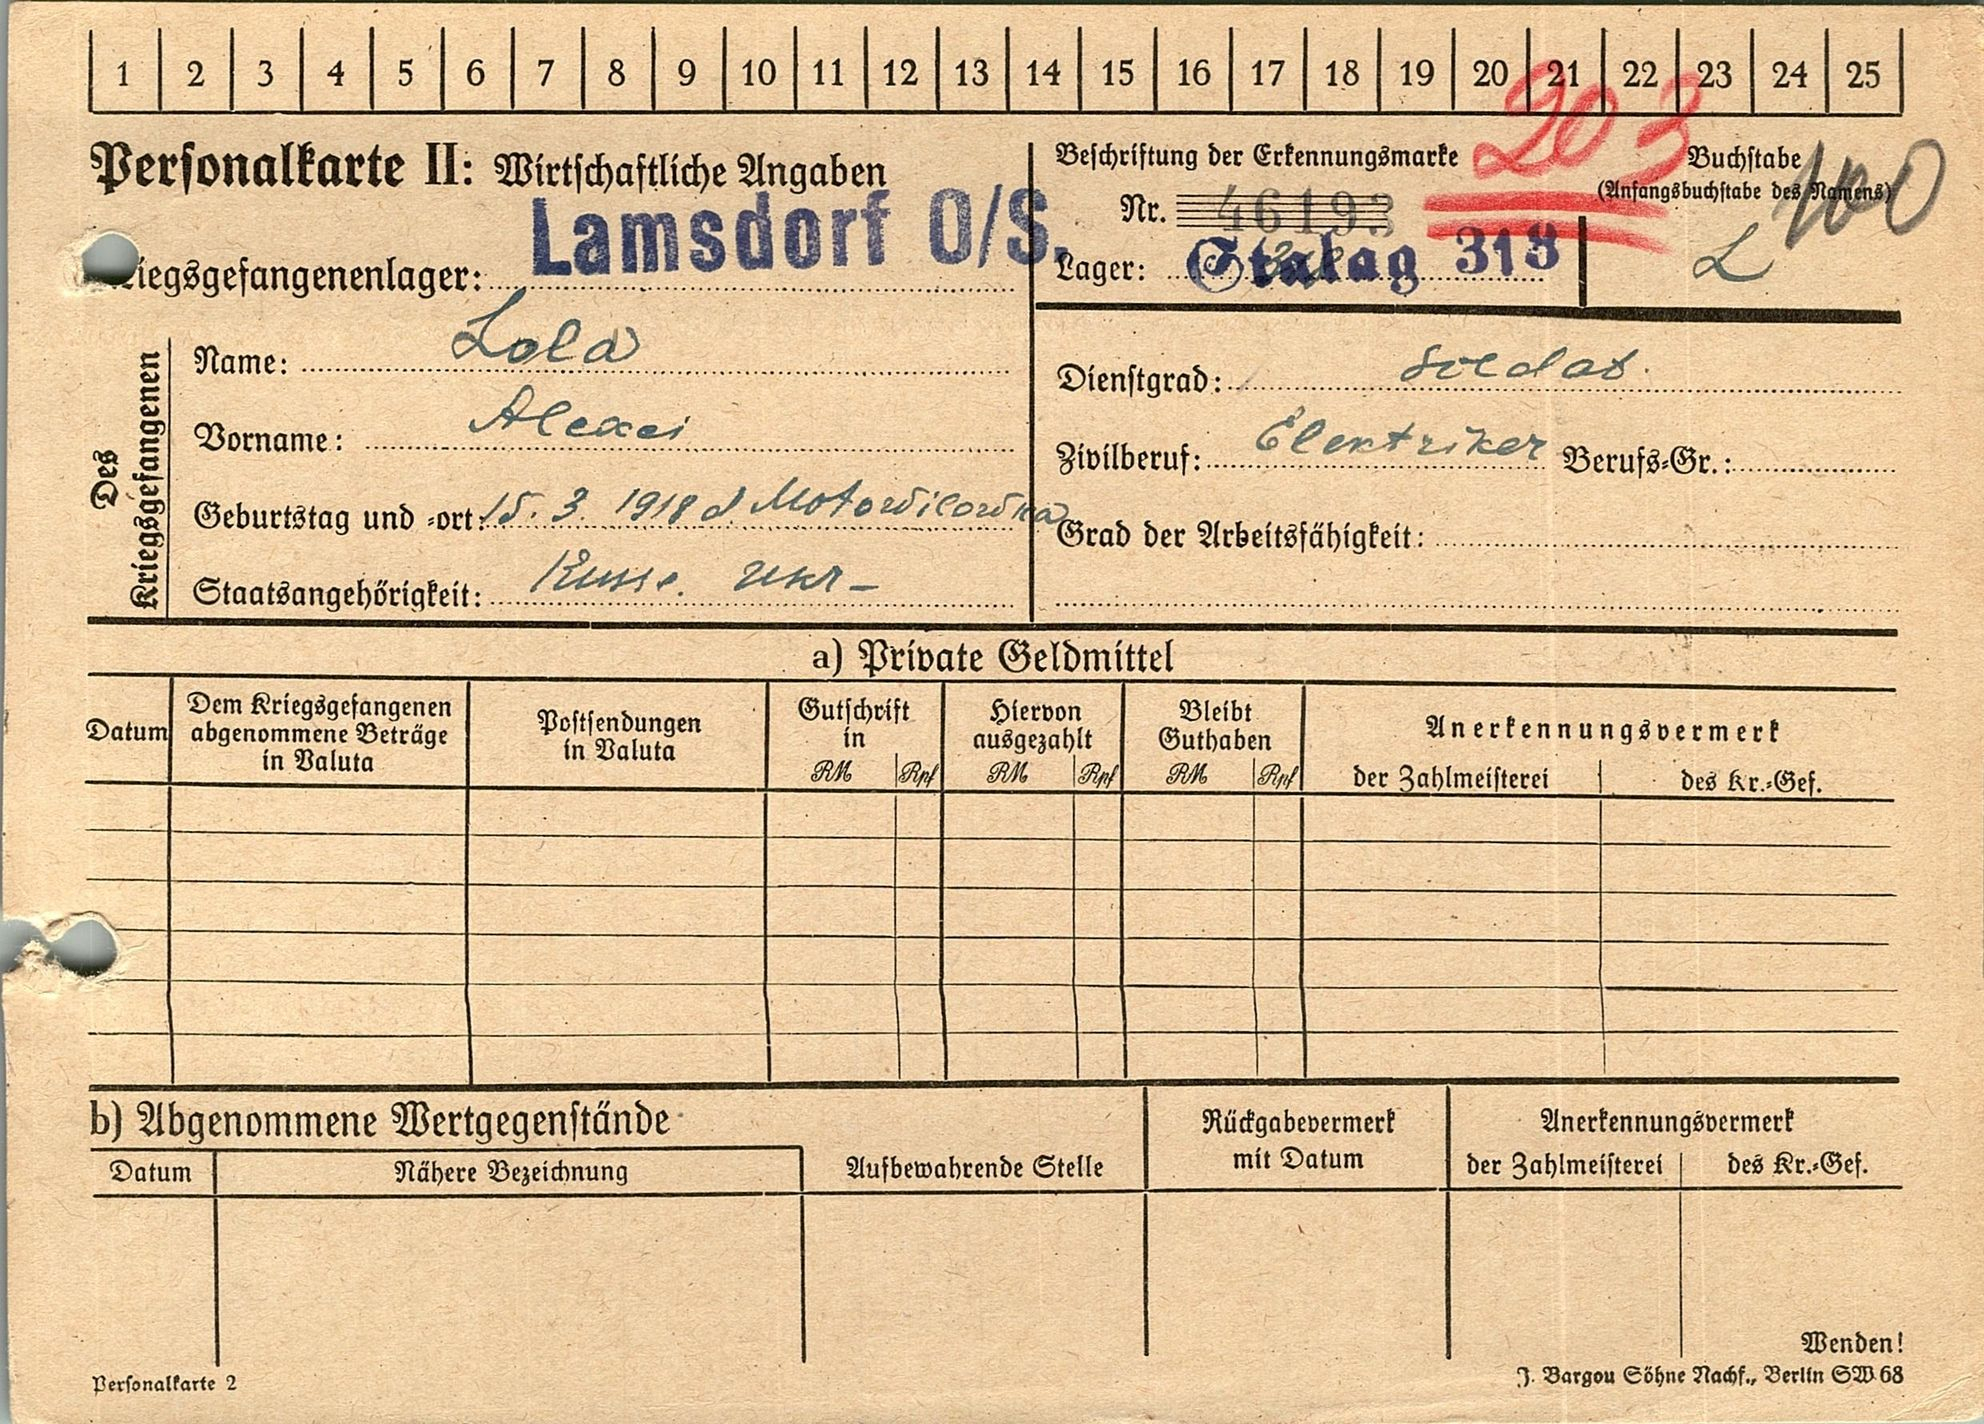 1 2 3 4 5 6 7 8 9 10 11 12 13 14 15 16 17 18 19 20 21 22 23 24 25
203
Personalkarte II: Wirtschaftliche Angaben
Beschriftung der Erkennungsmarke
Buchstabe
(Anfangsbuchstabe des Namens)
100
Nr. 46193
Lamsdorf O/S.
iegsgefangenenlager:
Lager: Stalag 318
L
Des Kriegsgefangenen
Name: Lola
Dienstgrad: Soldat.
Vorname: Alexei
Zivilberuf: Elektriker Berufs-Gr.:
Geburtstag und -ort: 15. 3. 1918 Motowilowka
Grad der Arbeitsfähigkeit:
Staatsangehörigkeit: Russe. Ukr-
a) Private Geldmittel
Datum
Dem Kriegsgefangenen
abgenommene Beträge
in Valuta
Postsendungen
in Valuta
Gutschrift
in
RM Rpf
Hiervon
ausgezahlt
RM Rpf
Bleibt
Guthaben
RM Rpf
Anerkennungsvermerk
der Zahlmeisterei des Kr.-Gef.
b) Abgenommene Wertgegenstände
Datum
Nähere Bezeichnung
Aufbewahrende Stelle
Rückgabevermerk
mit Datum
Anerkennungsvermerk
der Zahlmeisterei des Kr.-Gef.
Wenden!
Personalkarte 2
J. Bargou Söhne Nachf., Berlin SW 68